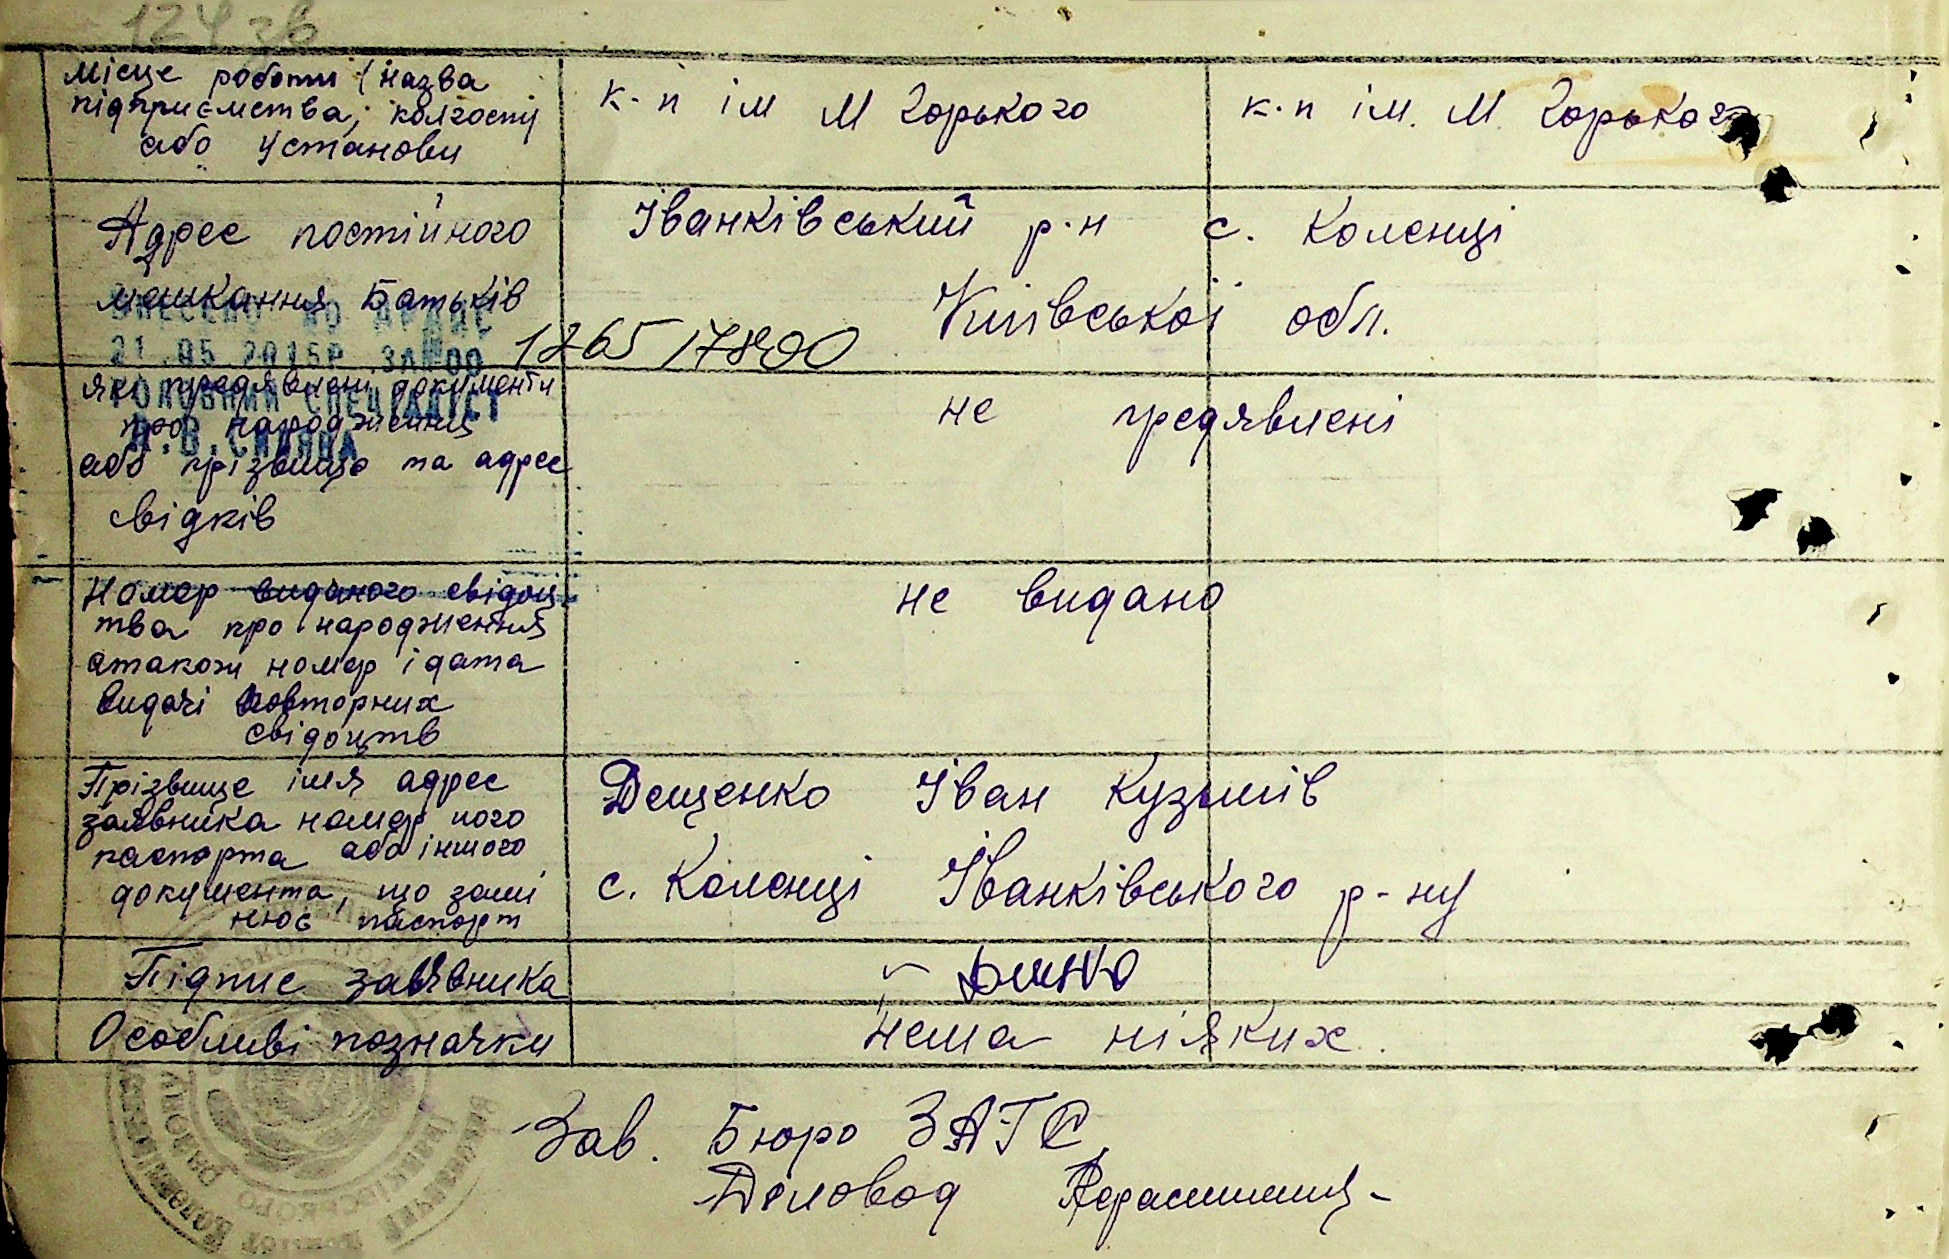 124 зв
Місце роботи (назва
підприємства, колгоспу
або установи
к-п ім М Горького
к-п ім. М. Горького
Адрес постійного
мешкання Батьків
Іванківський р-н с. Коленці
Київської обл.
ВНЕСЕНО ДО ДРАЦС
21.05.2015Р. ЗА №00 126517800
ГОЛОВНИЙ СПЕЦІАЛІСТ
які предявлені документи
про народження
або прізвище та адрес
свідків
не предявлені
Номер виданого свідоц
тва про народження
атакож номер і дата
видачі повторних
свідоцтв
не видано
Прізвище імя адрес
заявника номер його
паспорта або іншого
документа, що замі
нює паспорт
Дещенко Іван Кузьмів
с. Коленці Іванківського р-ну
Підпис заявника
Особливі позначки
нема ніяких.
Зав. Бюро ЗАГС
Деловод